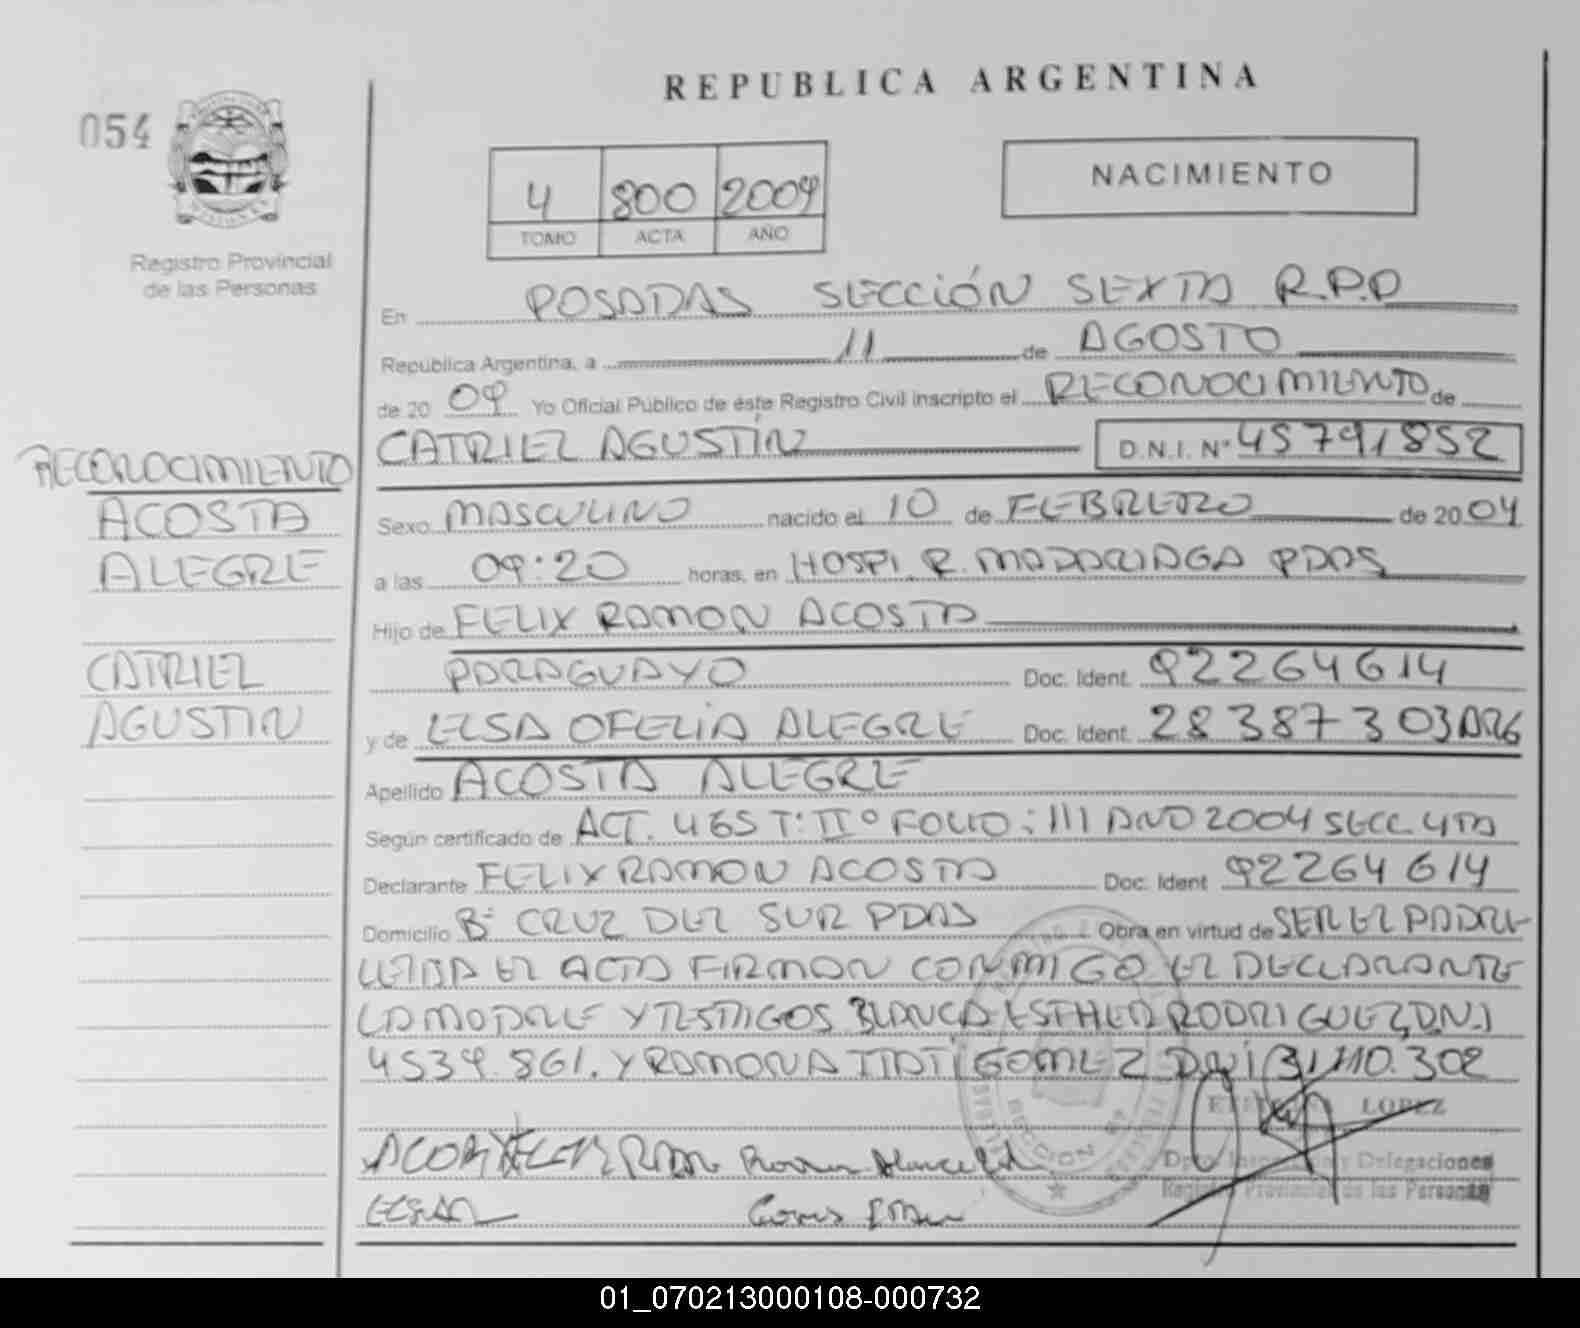 REPUBLICA ARGENTINA
054
NACIMIENTO
4 800 2009
TOMO ACTA AÑO
Registro Provincial
de las Personas
En POSADAS SECCIÓN SEXTA R.P.P
República Argentina, a 11 de AGOSTO
de 20 09 Yo Oficial Público de éste Registro Civil inscripto el RECONOCIMIENTO de
CATRIEL AGUSTÍN D.N.I. Nº 45791852
RECONOCIMIENTO
ACOSTA
ALEGRE
CATRIEL
AGUSTIN
Sexo MASCULINO nacido el 10 de FEBRERO de 2004
a las 09:20 horas, en HOSPI. R. MADARIAGA PDAS
Hijo de FELIX RAMON ACOSTA
PARAGUAYO Doc. Ident. 92264614
y de ELSA OFELIA ALEGRE Doc. Ident. 28387303 ARG
Apellido ACOSTA ALEGRE
Según certificado de ACT. 465 T: IIº FOLIO: 111 AÑO 2004 SECC. 4TA
Declarante FELIX RAMON ACOSTA Doc. Ident 92264614
Domicilio Bº CRUZ DEL SUR PDAS Obra en virtud de SER EL PADRE
LEIDA EL ACTA FIRMAN CONMIGO EL DECLARANTE
LA MADRE Y TESTIGOS BLANCA ESTHER RODRIGUEZ, D.N.I
4539.861. Y RAMONA ITATÍ GOMEZ DNI 31.110.302
LOPEZ
Dpto. Inspección y Delegaciones
Registro Provincial de las Personas
SECCION
01_070213000108-000732